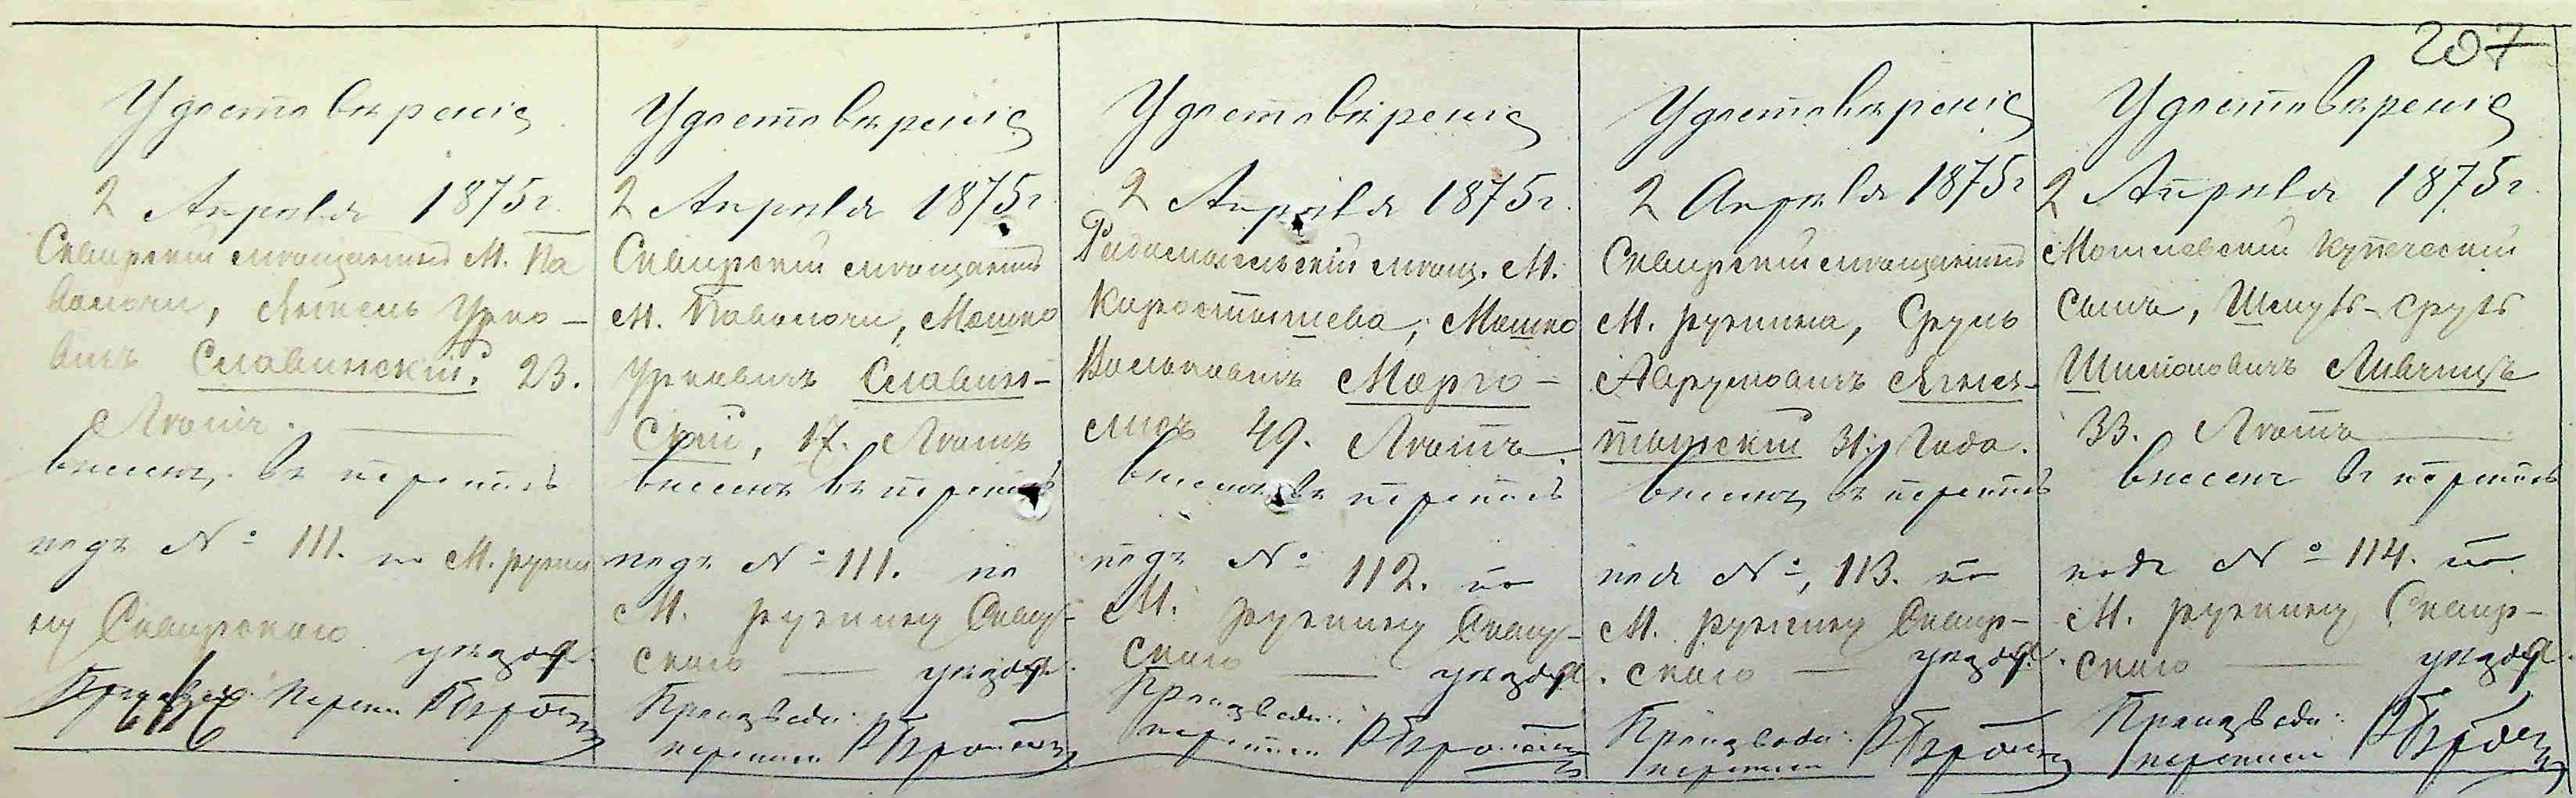 207
Удостовѣреніе
2 Апрѣля 1875 г.
Сквирскій мѣщанинъ М. Па
волочи, Янкель Урко-
вичъ Славинскій, 23.
Лѣтъ.
внесенъ въ перепись
подъ № 111. по М. Ружи
ну Сквирскаго
уѣзда.
перепи
Удостовѣреніе
2 Апрѣля 1875 г.
Сквирскій мѣщанинъ
М. Паволочи, Мошко
Урковичъ Славин-
скій, 17. Лѣтъ
внесенъ въ перепись
подъ № 111. по
М. Ружину Сквир-
скаго уѣзда.
Производи:
переписи
Удостовѣреніе
2 Апрѣля 1875 г.
Радомысльскій мѣщ. М.
Коростышева, Мошко
Марго-
лисъ 49. Лѣтъ.
внесенъ въ перепись
подъ № 112. по
М. Ружину Сквир-
скаго уѣзда.
Производи:
переписи
Удостовѣреніе
2 Апрѣля 1875 г
Сквирскій мѣщанинъ
М. Ружина, Сруль
Аврумовичъ
31. Года.
внесенъ въ перепись
подъ №, 113. по
М. Ружину Сквир-
скаго уѣзда.
Производи:
переписи
Удостовѣреніе
2 Апрѣля 1875 г.
купеческій
сынъ, Шмуль-Сруль
Шимоновичъ Ливчицъ
33. Лѣтъ
внесенъ въ перепись
подъ № 114. по
М. Ружину Сквир-
скаго уѣзда.
Производи:
переписи